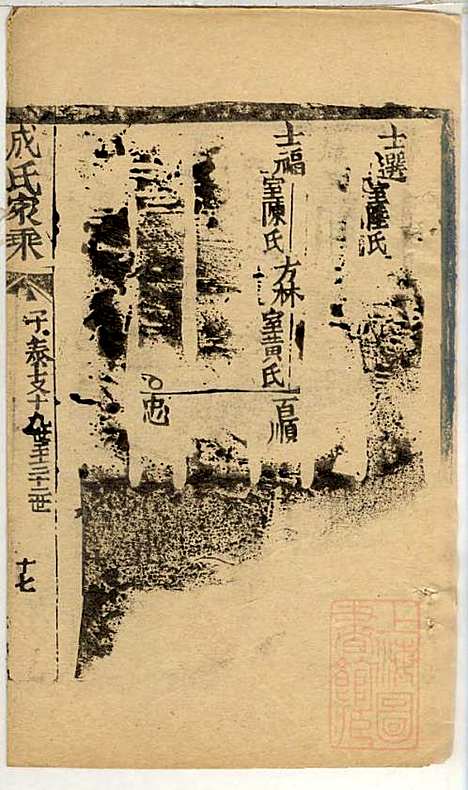 士選 室陸氏
士福 室陳氏 方林 室黄氏 百順
百忠
成氏家乘
子泰支十九世至二十三世
十七
上海圖書館藏